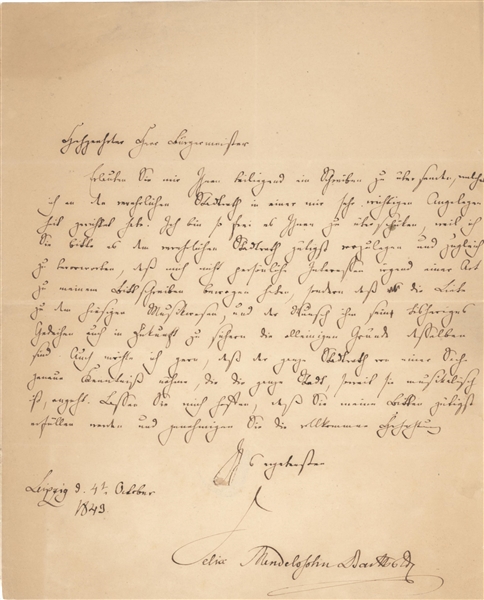 Hochgeehrter Herr Bürgermeister
Erlauben Sie mir Ihnen beiliegend ein Schreiben zu übersenden, welches
ich an den verehrlichen Stadtrath in einer mir sehr wichtigen Angelegen
heit gerichtet habe. Ich bin so frei es Ihnen zu überschicken, weil ich
Sie bitte es dem verehrlichen Stadtrath gütigst vorzulegen und zugleich
zu bevorworten, daß mich nicht persönliche Interessen irgend einer Art
zu meinem Bittschreiben bewogen haben, sondern daß die Liebe
zu dem hiesigen Musikwesen, und der Wunsch ihm sein bisheriges
Gedeihen auch in Zukunft zu sichern die alleinigen Gründe desselben
sind. Auch möchte ich gern, daß der ganze Stadtrath von einer Sache
genaue Kenntniß nähme, die die ganze Stadt, soweit sie musikalisch
ist, angeht. Lassen Sie mich hoffen, daß Sie meine Bitten gütigst
erfüllen werden und genehmigen Sie die vollkommene Hochachtung
Ihres ergebensten
Leipzig d. 4t. October
1843
Felix Mendelssohn Bartholdy